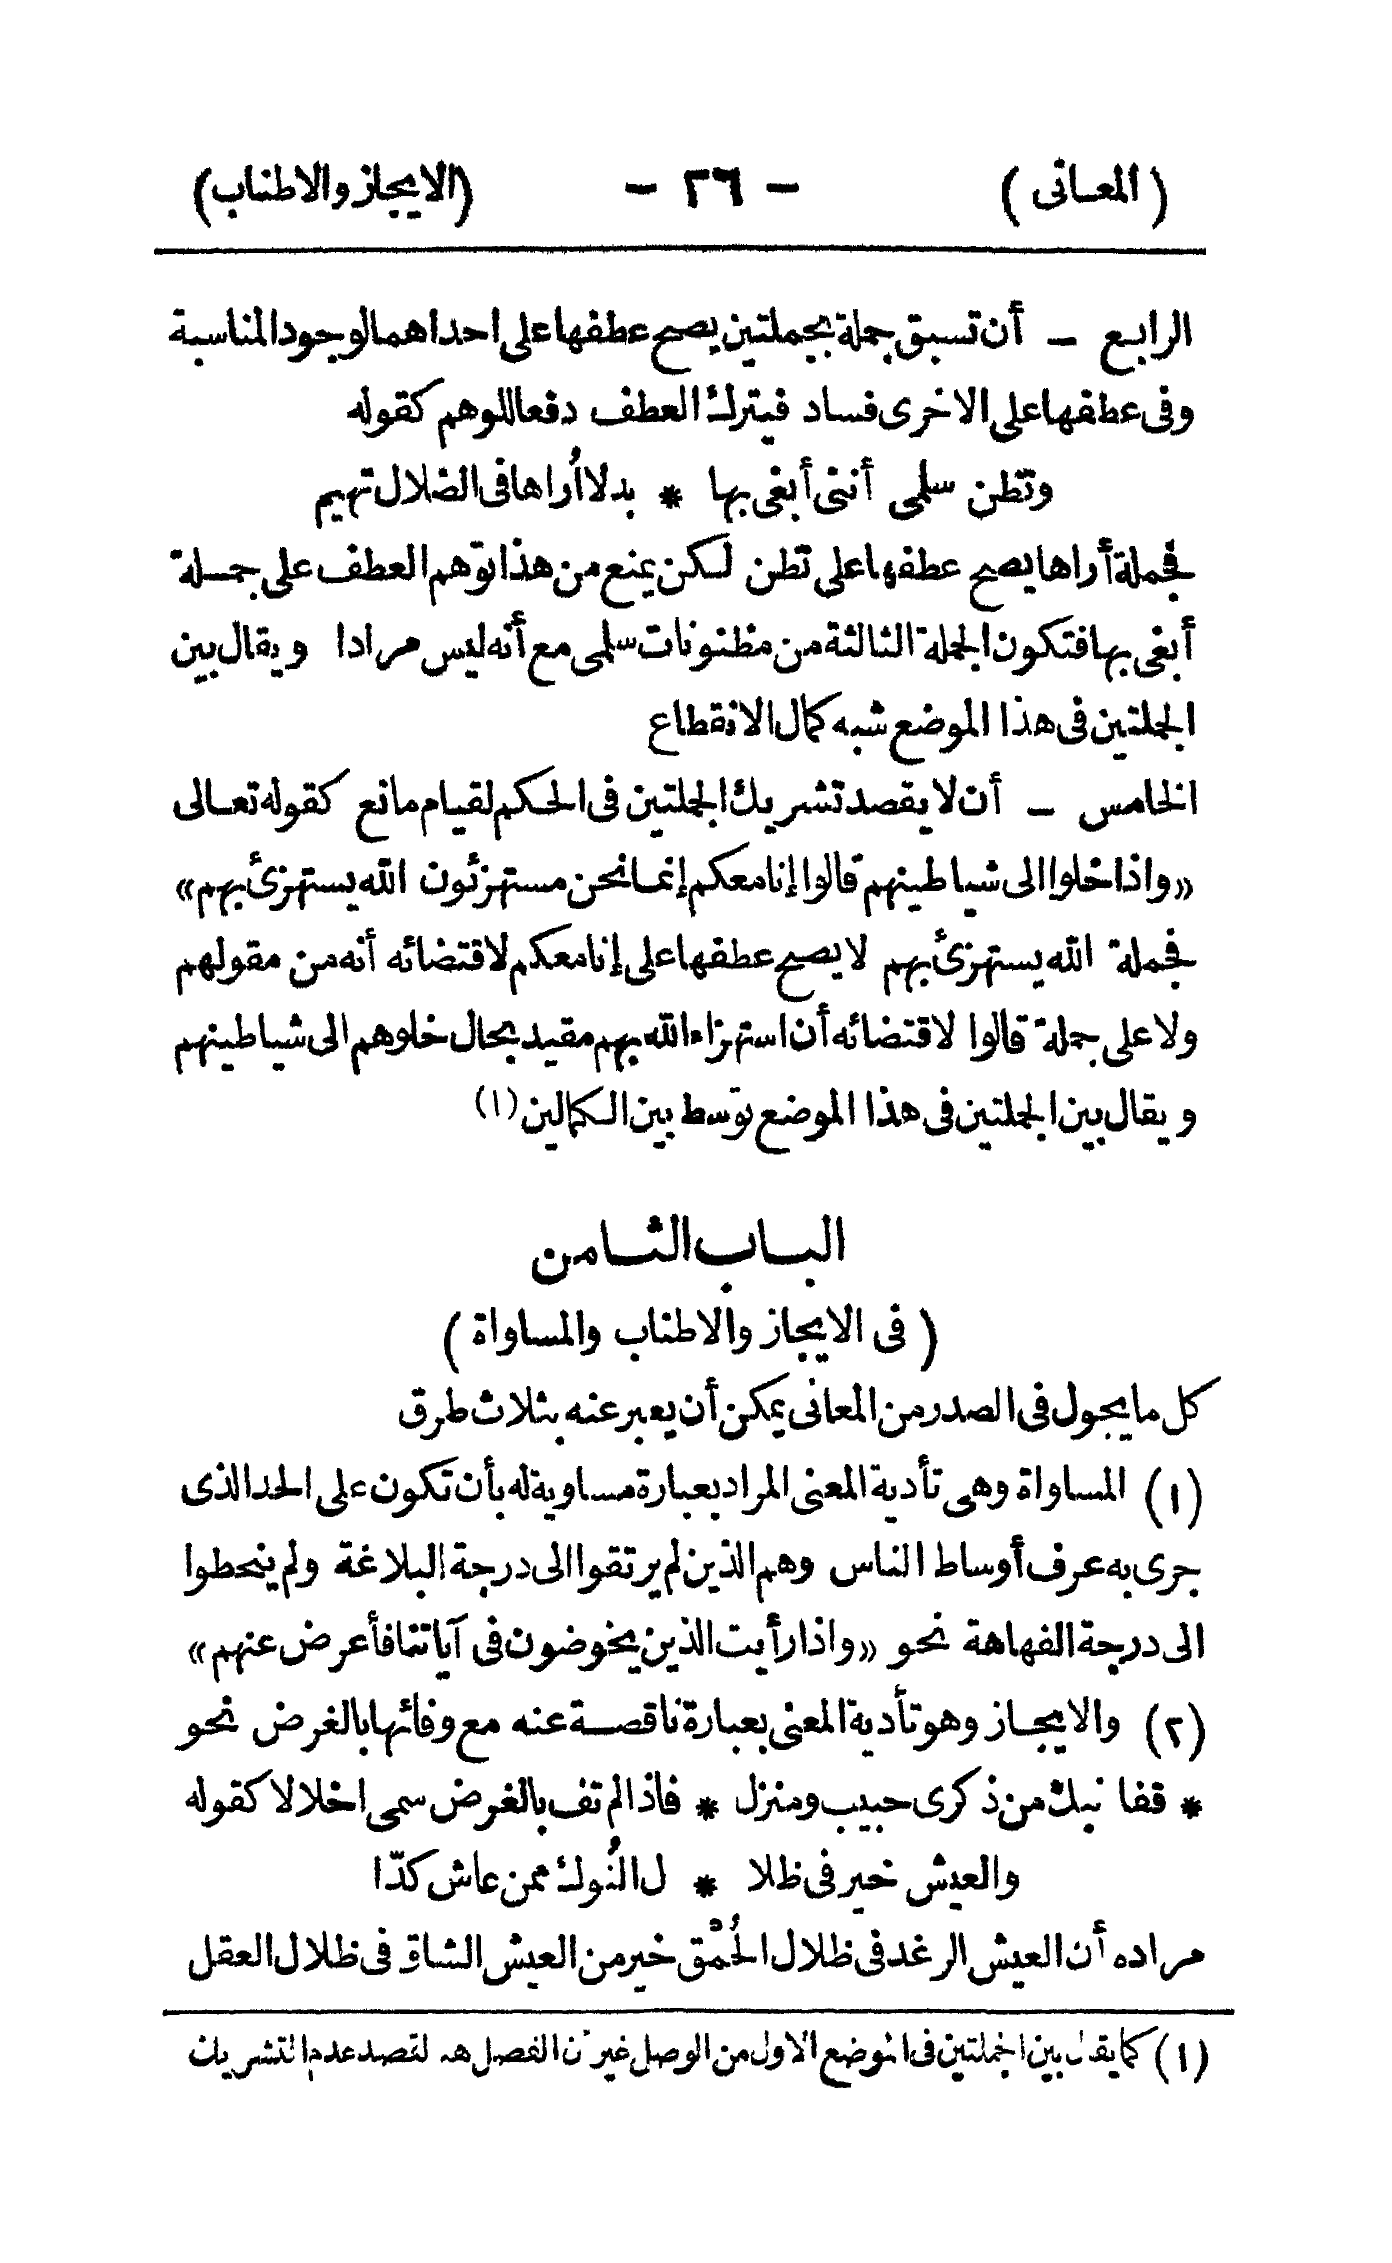 (المعانى) - ٢٦ - (الايجاز والاطناب)
الرابع - أن تسبق جملة بجملتين يصح عطفها على احداهما لوجود المناسبة
وفى عطفها على الاخرى فساد فيترك العطف دفعا للوهم كقوله
وتظن سلمى أننى أبغى بها * بدلا أُراها فى الضلال تهيم
فجملة أراها يصح عطفها على تظن لكن يمنع من هذا توهم العطف على جملة
أبغى بها فتكون الجملة الثالثة من مظنونات سلمى مع أنه ليس مرادا ويقال بين
الجملتين فى هذا الموضع شبه كمال الانقطاع
الخامس - أن لا يقصد تشريك الجملتين فى الحكم لقيام مانع كقوله تعالى
«واذا خلوا الى شياطينهم قالوا إنا معكم إنما نحن مستهزئون الله يستهزئ بهم»
فجملة الله يستهزئ بهم لا يصح عطفها على إنا معكم لاقتضائه أنه من مقولهم
ولا على جملة قالوا لاقتضائه أن استهزاء الله بهم مقيد بحال خلوهم الى شياطينهم
ويقال بين الجملتين فى هذا الموضع توسط بين الكمالين (١)
الباب الثامن
(فى الايجاز والاطناب والمساواة)
كل ما يجول فى الصدر من المعانى يمكن أن يعبر عنه بثلاث طرق
(١) المساواة وهى تأدية المعنى المراد بعبارة مساوية له بأن تكون على الحد الذى
جرى به عرف أوساط الناس وهم الذين لم يرتقوا الى درجة البلاغة ولم ينحطوا
الى درجة الفهاهة نحو «واذا رأيت الذين يخوضون فى آياتنا فأعرض عنهم»
(٢) والايجاز وهو تأدية المعنى بعبارة ناقصة عنه مع وفائها بالغرض نحو
* قفا نبك من ذكرى حبيب ومنزل * فاذا لم تف بالغرض سمى اخلالا كقوله
والعيش خير فى ظلا * ل النُوك ممن عاش كدّا
مراده أن العيش الرغد فى ظلال الحُمْق خير من العيش الشاق فى ظلال العقل
(١) كما يقال بين الجملتين فى الموضع الاول من الوصل غير أن الفصل هنا لقصد عدم التشريك